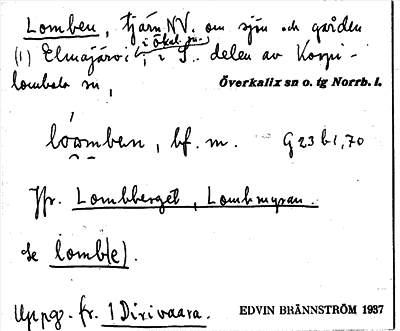 Lomben, tjärn NV. om sjön och gården
i Ökal. sn.
(1) Elmajärvi, i S. delen av Korpi-
lombolo sn,
Överkalix sn o. tg Norrb. l.
lóomben, bf. m. G23 b1,70
Jfr. Lombberget, Lombmyran.
se lomb(e).
Uppg. fr. 1 Dirivaara.
EDVIN BRÄNNSTRÖM 1937